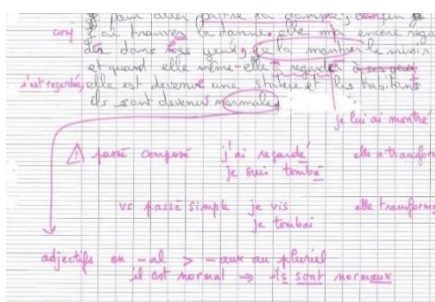 pour aller
conj j'ai trouver la damme, elle me encore regard
dans ses yeux, je la montrer le miroir
et quand elle même elle à regardé à ses yeux
s'est regardée elle est devenue une statue et les habitants
ils sont devenus normales
je lui ai montré
⚠ passé composé j'ai regardé elle a transform
je suis tombé
vs passé simple je vis elle transforma
je tombai
adjectifs en -al > -aux au pluriel
il est normal → ils sont normaux